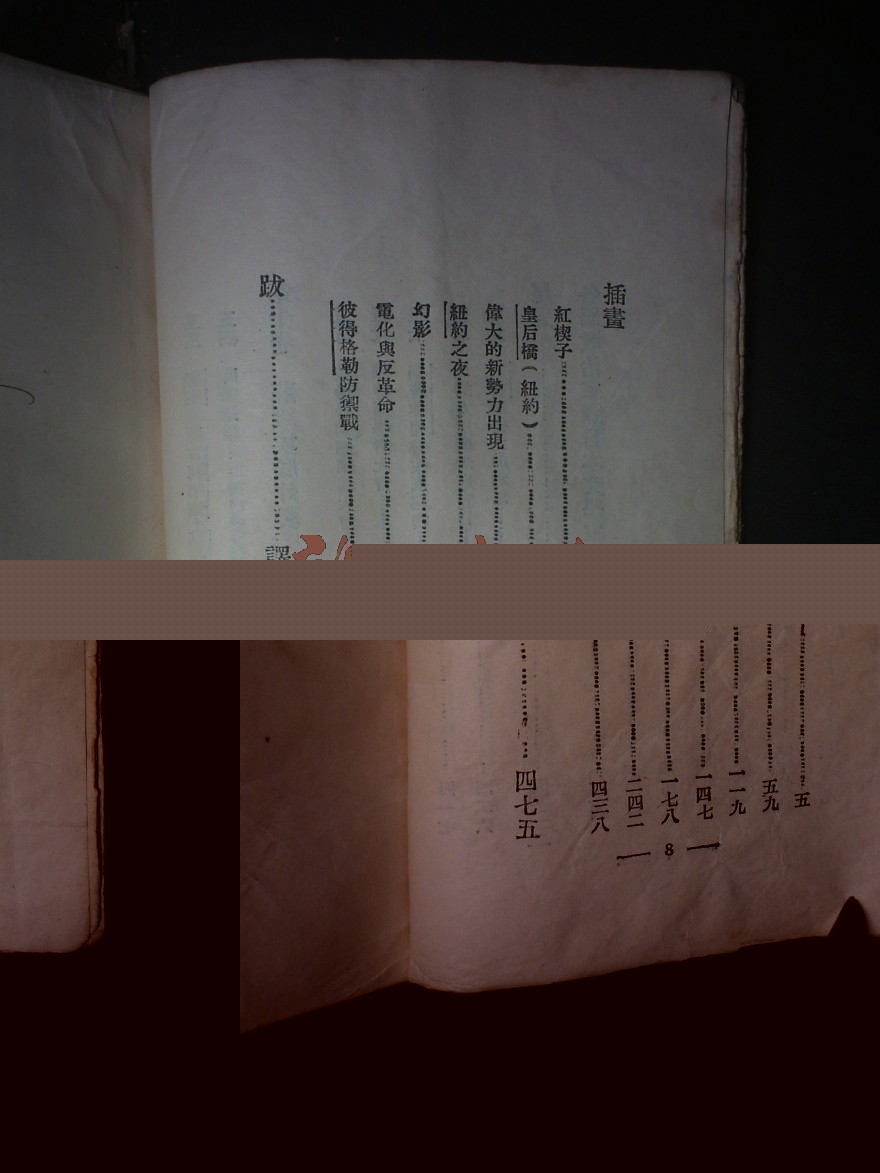 插畫
紅楔子……五
皇后橋(紐約)……五九
偉大的新勢力出現……一一九
紐約之夜……一四七
幻影……一七八
電化與反革命……二四二
彼得格勒防禦戰……四三八
跋……譯……四七五
8